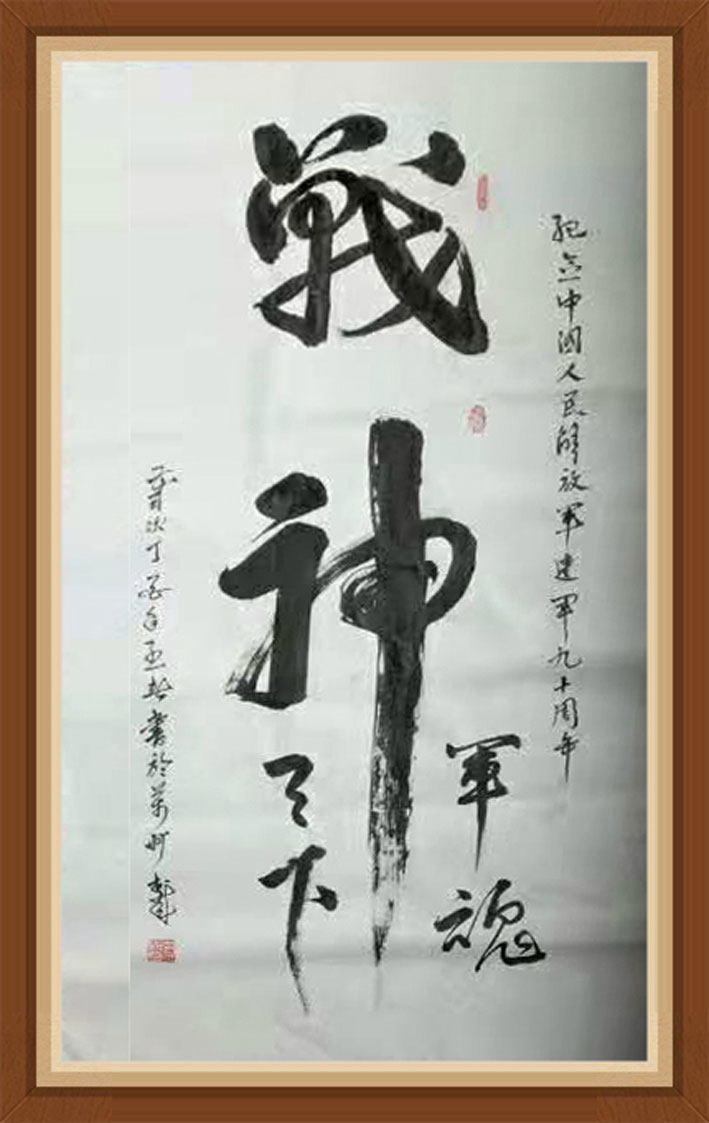 紀念中國人民解放軍建軍九十周年
戰神
軍魂
天下
歲次丁酉年書於萬州